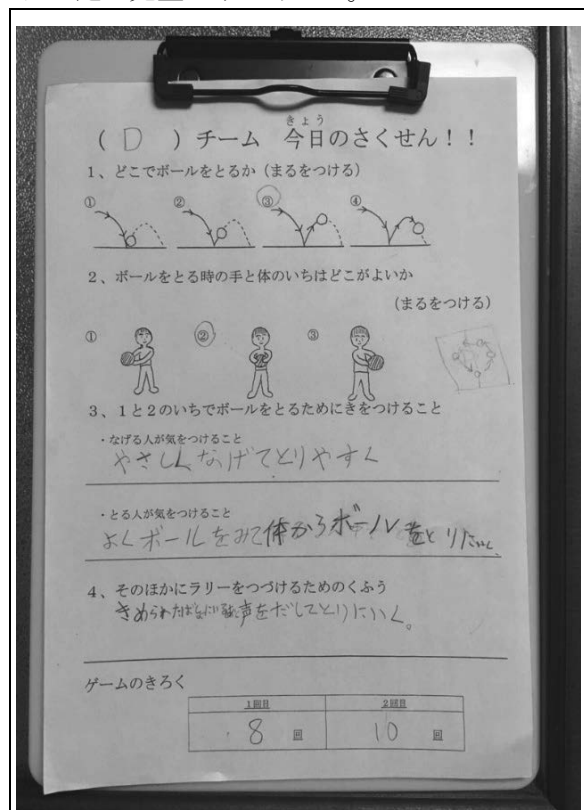 きょう
( D )チーム 今日のさくせん！！
1、どこでボールをとるか（まるをつける）
① ② ③ ④
2、ボールをとる時の手と体のいちはどこがよいか
（まるをつける）
① ② ③
3、1と2のいちでボールをとるためにきをつけること
・なげる人が気をつけること
やさしくなげてとりやすく
・とる人が気をつけること
よくボールをみて体からボールをとりにいく
4、そのほかにラリーをつづけるためのくふう
きめられた 声をだしてとりにいく。
ゲームのきろく
1回目 2回目
8 回 10 回